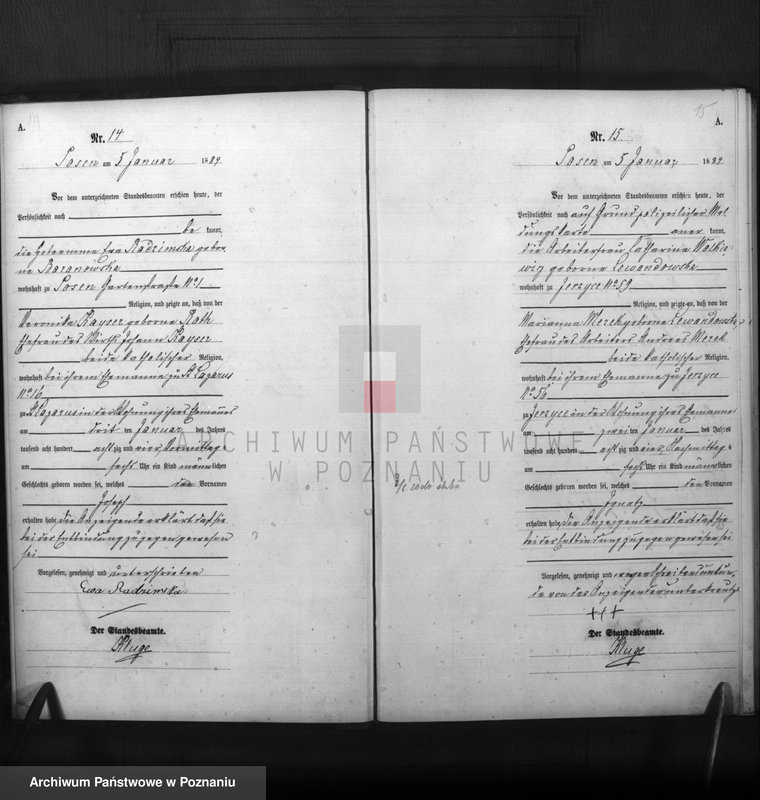 A.
Nr. 14
Posen am 5 Januar 1884
Vor dem unterzeichneten Standesbeamten erschien heute, der
Persönlichkeit nach
be kannt,
die Hebeamme Eva Radzimska gebor
ne Baranowska
wohnhaft zu Posen Gartenstraße No 1
Religion, und zeigte an, daß von der
Veronika Kayser geborne Rath
Ehefrau des Johann Kayser
beide katholischer Religion,
wohnhaft bei ihrem Ehemanne zu St Lazarus
No 16
zu St Lazarus in der Wohnung ihres Ehemannes
am drit ten Januar des Jahres
tausend acht hundert acht zig und vier Vormittag
um sechs Uhr ein Kind männlichen
Geschlechts geboren worden sei, welches den Vornamen
Joseph
erhalten habe, die Anzeigende erklärt daß sie
bei der Entbindung zugegen gewesen
sei
Vorgelesen, genehmigt und unterschrieben
Ewa Radzimska.
Der Standesbeamte.
Kluge
15
A.
Nr. 15
Posen am 5 Januar 1884
Vor dem unterzeichneten Standesbeamten erschien heute, der
Persönlichkeit nach auf Grund polizeilicher Mel
dungskarte aner kannt,
die Arbeiterfrau Catharina Walkie
wicz geborne Lewandowska
wohnhaft zu Jerzyce No 59
Religion, und zeigte an, daß von der
Marianna Merek geborne Lewandowska
Ehefrau des Arbeiters Andreas Merek
beide katholischer Religion,
wohnhaft bei ihrem Ehemanne zu Jerzyce
No 56
zu Jerzyce in der Wohnung ihres Ehemannes
am zweiten Januar des Jahres
tausend acht hundert acht zig und vier, Nachmittag s
um sechs Uhr ein Kind männlichen
Geschlechts geboren worden sei, welches den Vornamen
Ignatz
erhalten habe, die Anzeigende erklärt daß sie
bei der Entbindung zugegen gewesen sei
Vorgelesen, genehmigt und wegen Schreibensunkun-
de von der Anzeigenden unterkreuzt
+++
Der Standesbeamte.
Kluge
ARCHIWUM PAŃSTWOWE
W POZNANIU
Archiwum Państwowe w Poznaniu